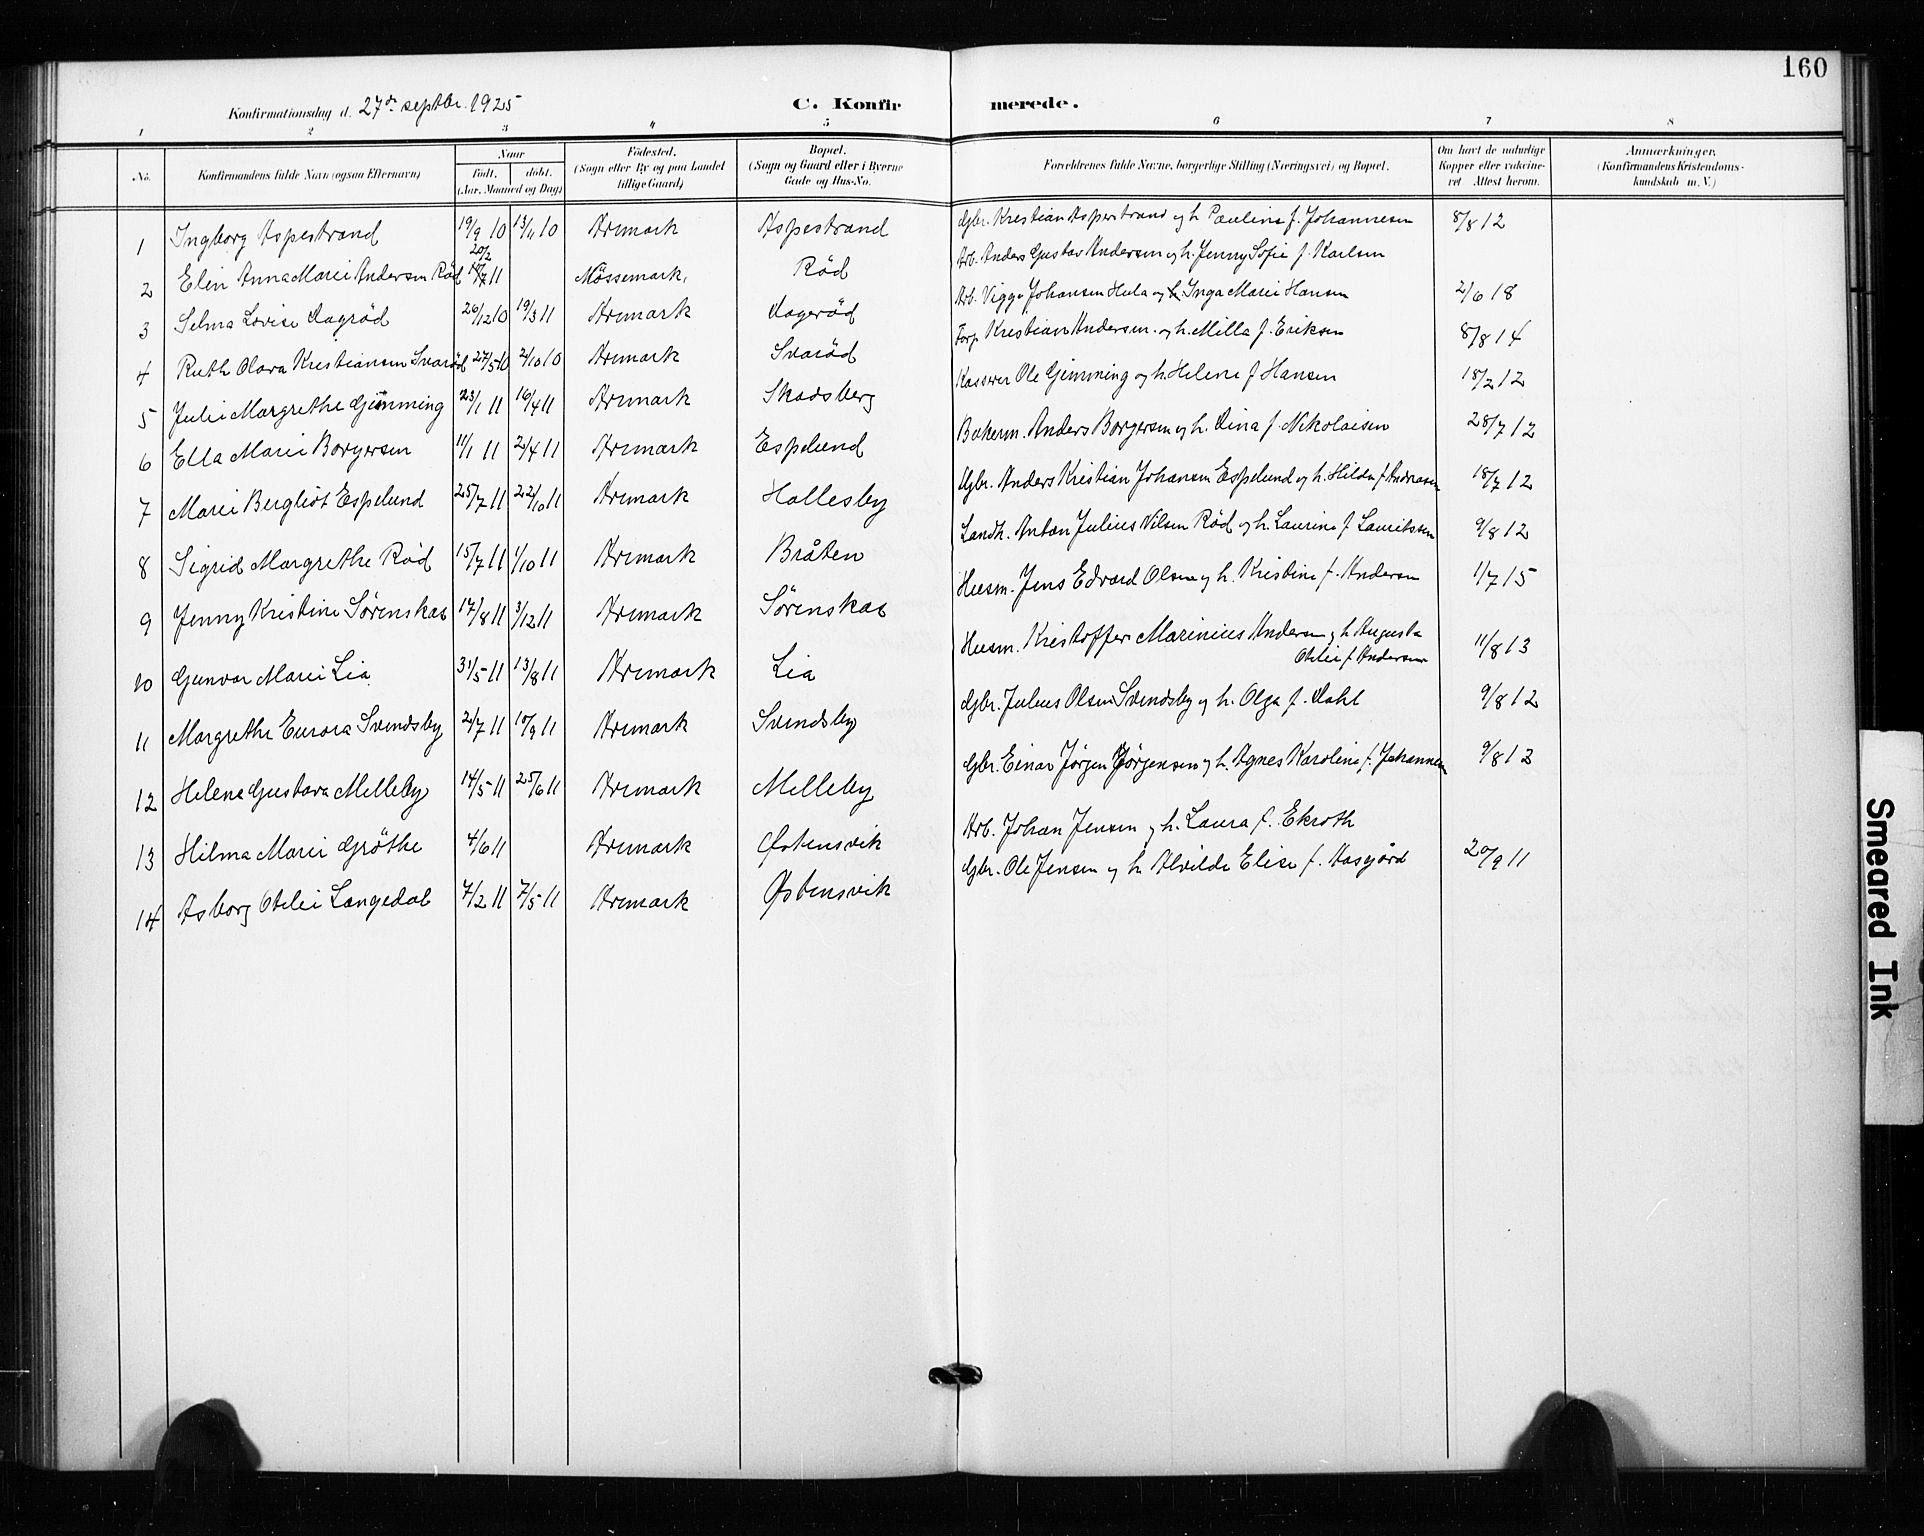 160
Konfirmationsdag d. 27de septbr. 1925
C. Konfirmerede.
1 2 3 4 5 6 7 8
No. Konfirmandens fulde Navn (ogsaa Efternavn) Naar født. døbt. (Aar, Maaned og Dag) Fødested. (Sogn eller By og paa Landet tillige Gaard) Bopæl. (Sogn og Gaard eller i Byerne Gade og Hus-No. Forældrenes fulde Navne, borgerlige Stilling (Næringsvei) og Bopæl. Om havt de naturlige Kopper eller vaccineret Attest herom. Anmærkninger, (Konfirmandens Kristendomskundskab m. V.)
1 Ingborg Aspestrand 19/9 10 13/11 10 Aremark Aspestrand Gbr. Kristian Aspestrand og h. Pauline f. Johannesen 8/8 12
2 Elin Anna Marie Andersen Rød 20/2 11 Nössemark, Röd Arb. Anders Gustav Andersen og h. Jenny Sofie f. Karlsen
3 Selma Lovise Dagröd 26/12 10 19/3 11 Aremark Dagröd Arb. Viggo Johansen Hula og h. Inga Marie Hansen 2/6 18
4 Ruth Clara Kristiansen Svaröd 27/5 10 2/10 10 Aremark Svaröd Forp. Kristian Andersen og h. Milla f. Eriksen 8/8 14
5 Julie Margrethe Gimming 23/1 11 16/4 11 Aremark Skodsberg Kasserer Ole Gimming og h. Helene f. Hansen 18/2 12
6 Ella Marie Borgersen 11/1 11 2/4 11 Aremark Espelund Bakerm. Anders Borgersen og h. Dina f. Nikolaisen 28/7 12
7 Marie Bergliot Espelund 25/7 11 22/10 11 Aremark Hallesby Gbr. Anders Kristian Johansen Espelund og h. Hilda f. Andreasen 18/7 12
8 Sigrid Margrethe Röd 15/7 11 1/10 11 Aremark Bråten Landh. Anton Julius Nilsen Röd og h. Laurine f. Lauritssen 9/8 12
9 Jenny Kristine Sörenskas 17/8 11 3/12 11 Aremark Sörenskas Husm. Jens Edvard Olsen og h. Kristine f. Andersen 1/7 15
10 Gunvor Marie Lia 31/5 11 13/8 11 Aremark Lia Husm. Kristoffer Marinius Andersen og h. Augusta Otilie f. Andersen 11/8 13
11 Margrethe Eurora Svendsby 2/7 11 10/9 11 Aremark Svendsby Gbr. Julius Olsen Svendsby og h. Olga f. Dahl 9/8 12
12 Helene Gustava Melleby 14/5 11 25/6 11 Aremark Melleby Gbr. Einar Jørgen Jørgensen og h. Agnes Karoline f. Johannesen 9/8 12
13 Hilma Marie Gröthe 4/6 11 Aremark Østensvik Arb. Johan Jensen og h. Laura f. Ekroth
14 Asborg Otilie Langedal 7/2 11 7/5 11 Aremark Østensvik Gbr. Ole Jensen og h. Alvilde Elise f. Aasgård 20/9 11
Smeared Ink